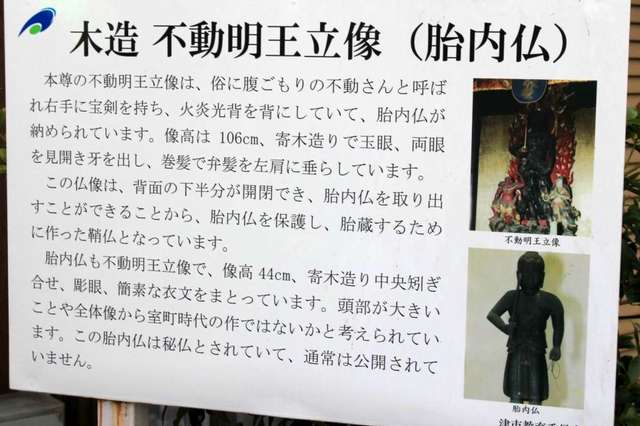 木造 不動明王立像（胎内仏）
本尊の不動明王立像は、俗に腹ごもりの不動さんと呼ば
れ右手に宝剣を持ち、火炎光背を背にしていて、胎内仏が
納められています。像高は 106cm、寄木造りで玉眼、両眼
を見開き牙を出し、巻髪で弁髪を左肩に垂らしています。
この仏像は、背面の下半分が開閉でき、胎内仏を取り出
すことができることから、胎内仏を保護し、胎蔵するため
に作った鞘仏となっています。
胎内仏も不動明王立像で、像高 44cm、寄木造り中央矧ぎ
合せ、彫眼、簡素な衣文をまとっています。頭部が大きい
ことや全体像から室町時代の作ではないかと考えられてい
ます。この胎内仏は秘仏とされていて、通常は公開されて
いません。
不動明王立像
胎内仏
津市教育委員